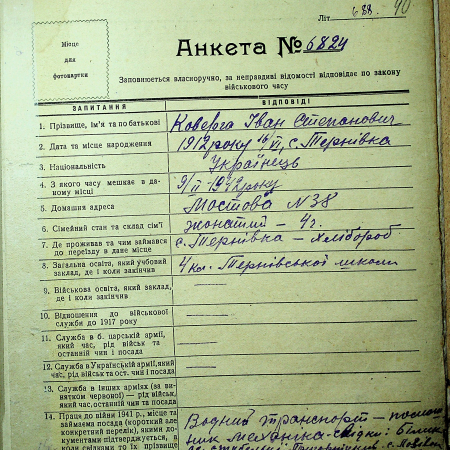 Літ 688. 40
Місце
для
фотокартки
Анкета № 6824
Заповнюється власноручно, за неправдиві відомості відповідає по закону
військового часу
ЗАПИТАННЯ ВІДПОВІДІ
1. Прізвище, ім'я та по батькові Коверга Іван Степанович
2. Дата та місце народження 1912 року 16/VI, с. Тернівка
3. Національність Українець
4. З якого часу мешкає в да-
ному місці 9/II 1942 року
5. Домашня адреса Мостова N 38
6. Сімейний стан та склад сім'ї жонатий – 4 г.
7. Де проживав та чим займався
до переїзду в дане місце с. Тернівка – хлібороб
8. Загальна освіта, який учбовий
заклад, де і коли закінчив 4 кл. Тернівської школи
9. Військова освіта, який заклад,
де і коли закінчив
10. Відношення до військової
служби до 1917 року
11. Служба в б. царській армії,
який час, рід військ та
останній чин і посада
12. Служба в Українській армії, який
час, рід військ та ост. чин і посада
13. Служба в інших арміях (за ви-
нятком червоної) — рід військ,
який час, останній чин та посада
14. Праця до війни 1941 р., місце та
займаєма посада (короткий але
конкретний перелік), якими до-
кументами підтверджується, в
коли свідками то їх прізвище
Водний транспорт – помош-
ник механіка – свідки: